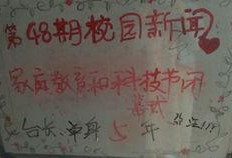 第48期校园新闻
家庭教育和科技节闭
幕式
台长 单身 5 年